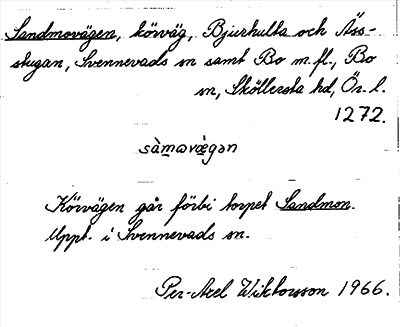 Sandmovägen, körväg, Bjurhulta och Äss-
stugan, Svennevads sn samt Bo m.fl., Bo
sn, Sköllersta hd, Ör. l.
1272.
sàmavæ̀gan
Körvägen går förbi torpet Sandmon.
Uppt. i Svennevads sn.
Per-Axel Wiktorsson 1966.